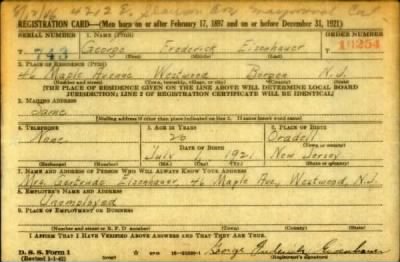 4212 E. Maywood Cal
REGISTRATION CARD—(Men born on or after February 17, 1897 and on or before December 31, 1921)
SERIAL NUMBER 1. NAME (Print) ORDER NUMBER
T 743 George Frederick Eisenhauer 10254
2. PLACE OF RESIDENCE (Print)
46 Maple Avenue Westwood Bergen N.J.
(Number and street) (Town, township, village, or city) (County) (State)
[THE PLACE OF RESIDENCE GIVEN ON THE LINE ABOVE WILL DETERMINE LOCAL BOARD
JURISDICTION; LINE 2 OF REGISTRATION CERTIFICATE WILL BE IDENTICAL]
3. MAILING ADDRESS
Same
[Mailing address if other than place indicated on line 2. If same insert word same]
4. TELEPHONE 5. AGE IN YEARS 6. PLACE OF BIRTH
None 20 Oradell
DATE OF BIRTH
July 1921 New Jersey
7. NAME AND ADDRESS OF PERSON WHO WILL ALWAYS KNOW YOUR ADDRESS
Mrs. Gertrude Eisenhauer, 46 Maple Ave, Westwood, N.J.
8. EMPLOYER'S NAME AND ADDRESS
Unemployed
9. PLACE OF EMPLOYMENT OR BUSINESS
(Number and street or R. F. D. number) (Town) (County) (State)
I AFFIRM THAT I HAVE VERIFIED ABOVE ANSWERS AND THAT THEY ARE TRUE.
D. S. S. Form 1 George Frederick Eisenhauer
(Revised 1-1-42) (Registrant's signature)